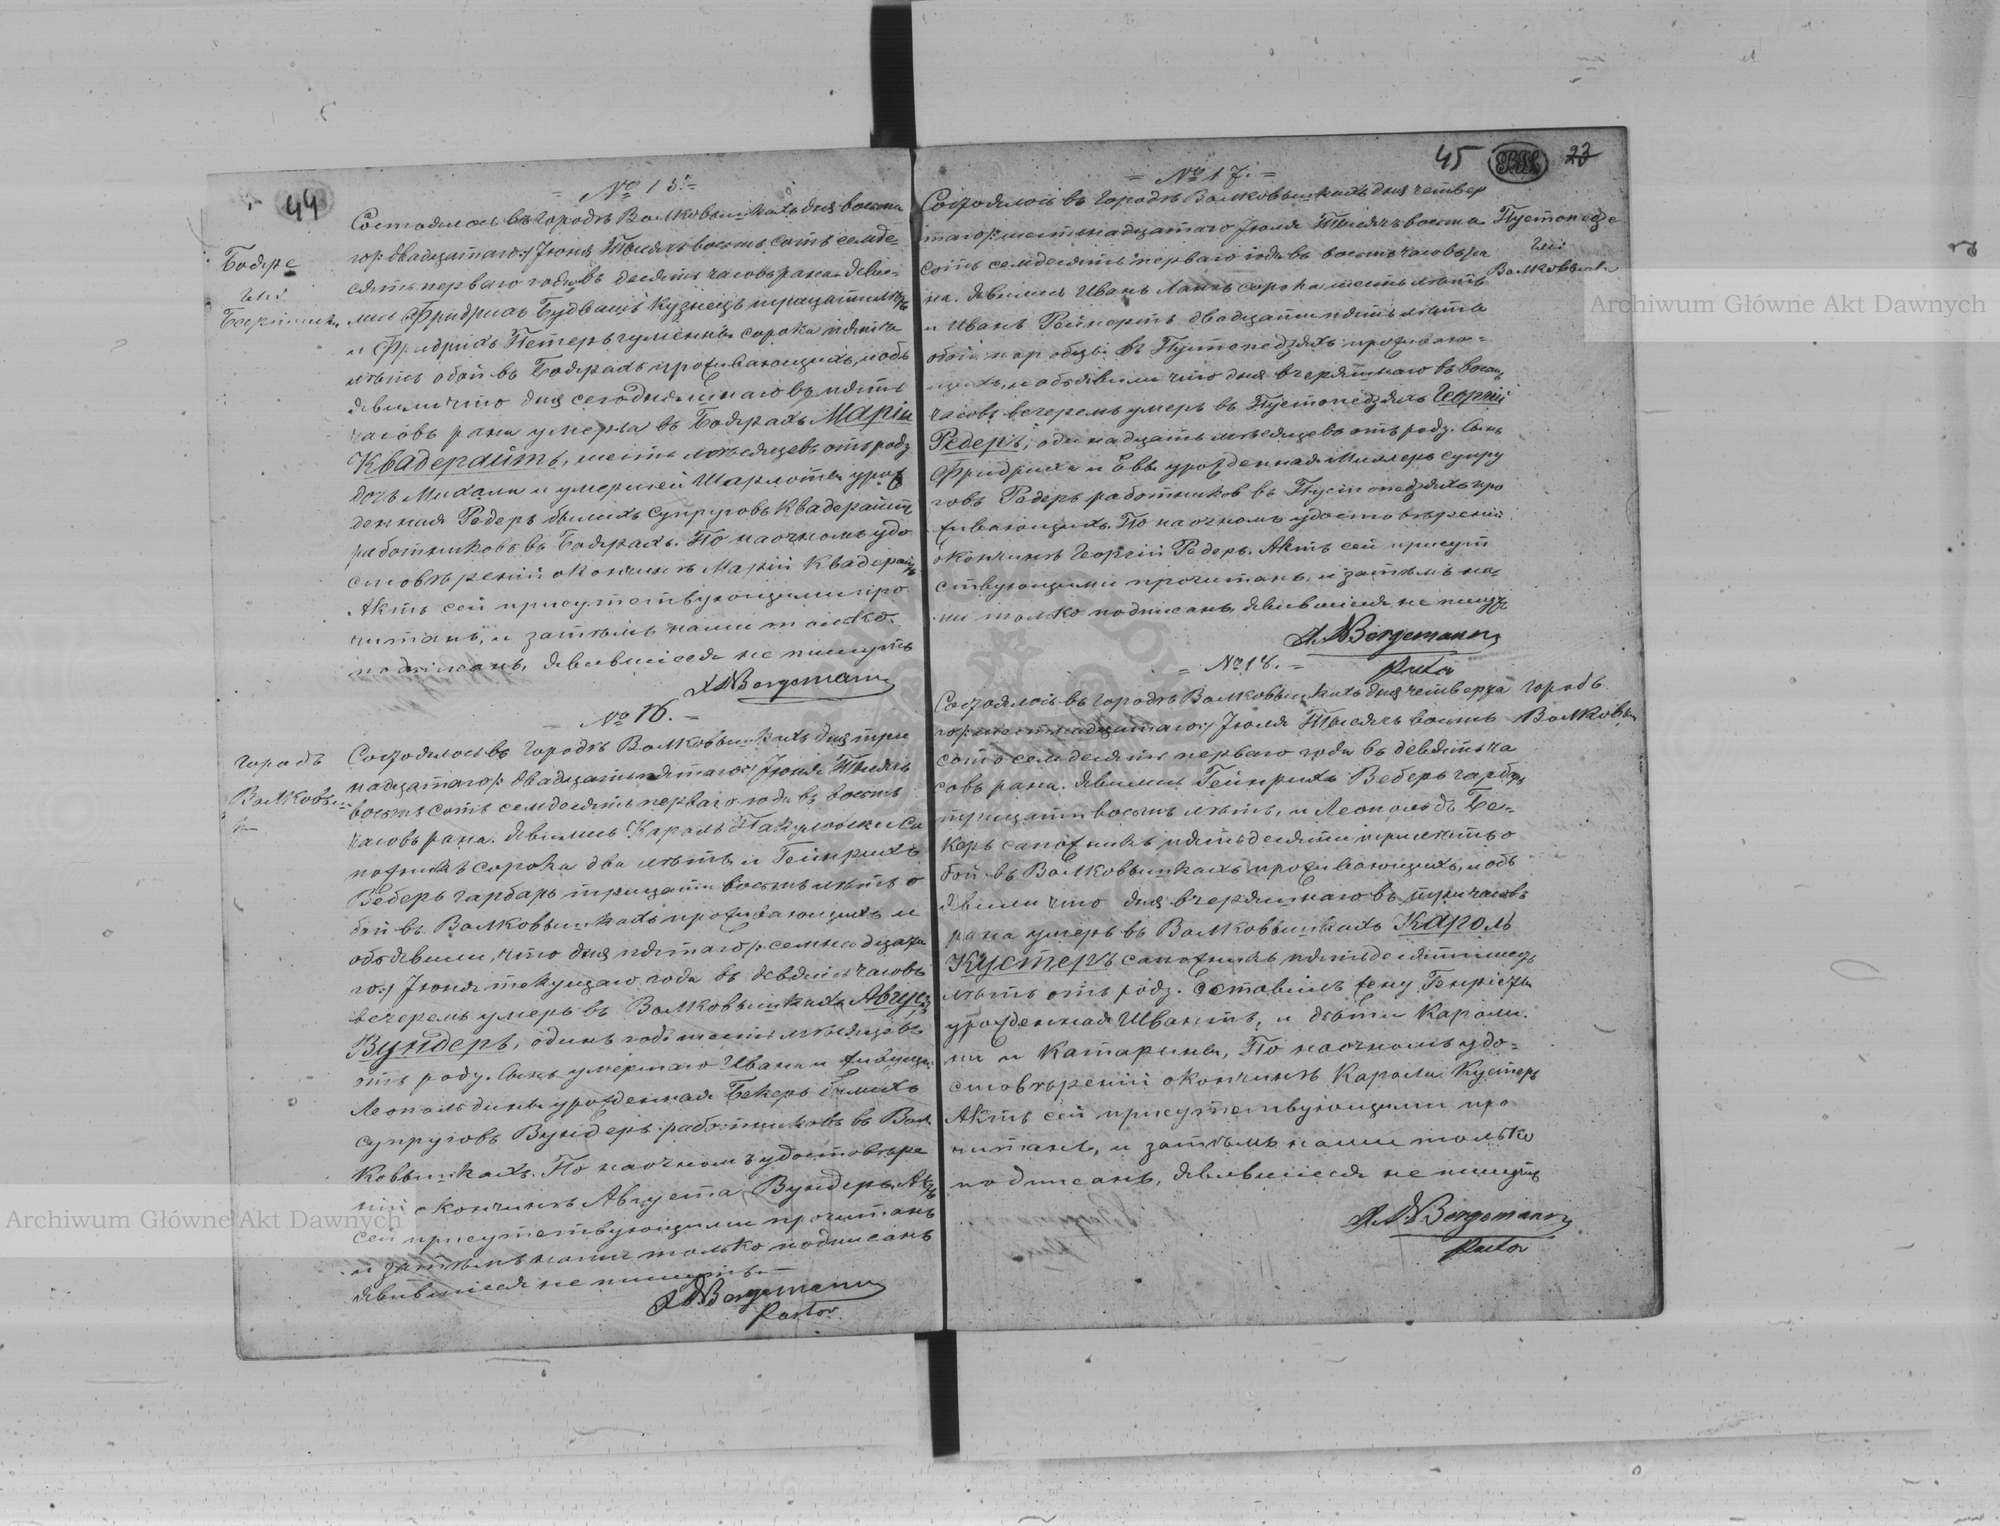 44
№ 15.
Бодре
Состоялось въ городѣ Волковышкахъ дня восьма
го/: двадцатаго :/ Іюня Тысяча восемь сотъ семде-
сятъ перваго года въ десять часовъ рана. Яви-
лись Фридрихъ Кузнецъ тридцати лѣтъ
и Фридрихъ Петеръ сорока пяти
лѣтъ обои въ Бодрахъ проживающихъ, и объ
явили что дня сегоднешнаго въ пять
часовъ рана умерла въ Бодрахъ Марія
Квадерайтъ, шесть мѣсяцевъ отъ роду
дочь Михала и умершей Шарлоты урож
денная Редеръ бывшихъ супруговъ Квадерайтъ
работниковъ въ Бодрахъ. По наочномъ удо
стовѣреніи окончинѣ Маріи Квадерайтъ
Актъ сей присутствующими про
читанъ, и затѣмъ нами только
подписанъ, Явившіеся не пишутъ
Bergemann
№ 16.
городъ
Волковыш
ки
Состоялось въ городѣ Волковышкахъ дня три
надцатаго/: двадцать пятаго :/ Іюня Тысяча
восемь сотъ семдесятъ перваго года въ восемь
часовъ рана. Явились Кароль Са
пожникъ сорока два лѣтъ и Гейнрихъ
Веберъ гарбарь тридцати восемь лѣтъ о
бои въ Волковышкахъ проживающихъ и
объявили, что дня пятаго/: семнадцата
го :/ Іюня текущаго года въ девять часовъ
вечеремъ умеръ въ Волковышкахъ Августъ
Вундеръ, одинъ годъ шесть мѣсяцевъ
отъ роду. Сынъ умершаго Ивана и живущей
Леопольдины урожденная Бекеръ бывшихъ
супруговъ Вундеръ работниковъ въ Вол
ковышкахъ. По наочномъ удостовѣре
ніи окончинѣ Августа Вундеръ, Актъ
сей присутствующими прочитанъ
и затѣмъ нами только подписанъ
Явившіеся не пишутъ.
Bergemann
Pastor
45
23
№ 17.
Пустопедзе
Состоялось въ городѣ Волковышкахъ дня четвер
таго/: шестьнадцатаго Іюля Тысяча восемь
сотъ семдесятъ перваго года въ восемь часовъ ра
на. Явились Иванъ Лангъ сорока шесть лѣтъ
и Иванъ Рейнертъ двадцати пять лѣтъ
обои паробцы въ Пустопедзяхъ проживаю-
щихъ, и объявили что дня вчеряшнаго въ восемь
часовъ вечеремъ умеръ въ Пустопедзяхъ Георгій
Редеръ, одинадцать мѣсяцевъ отъ роду. Сынъ
Фридриха и Евы урожденная Миллеръ супру
говъ Редеръ работниковъ въ Пустопедзяхъ про
живающихъ. По наочномъ удостовѣреніи
окончинѣ Георгій Редеръ. Актъ сей присут
ствующими прочитанъ, и затѣмъ на-
ми только подписанъ, Явившіеся не пишутъ
Bergemann
Pastor
№ 18.
городъ
Волковыш
Состоялось въ городѣ Волковышкахъ дня четверта
го/: шестьнадцатаго :/ Іюля Тысяча восемь
сотъ семдесятъ перваго года въ девять ча
совъ рана. Явились Гейнрихъ Веберъ гарбарь
тридцати восемь лѣтъ, и Леопольдъ Бе-
керъ сапожникъ пятьдесяти три лѣтъ о
бои въ Волковышкахъ проживающихъ, и объ
явили что дня вчеряшнаго въ три часовъ
рана умеръ въ Волковышкахъ Кароль
Кустеръ сапожникъ пятьдесятъ шесть
лѣтъ отъ роду. Оставилъ жену Генріэту
урожденная Швантъ, и дѣти Кароли
ни и Катарины, По наочномъ удо-
стовѣреніи окончинѣ Кароля Кустеръ
Актъ сей присутствующими про
читанъ, и затѣмъ нами только
подписанъ, Явившіеся не пишутъ
Bergemann
Pastor
Archiwum Główne Akt Dawnych
Archiwum Główne Akt Dawnych